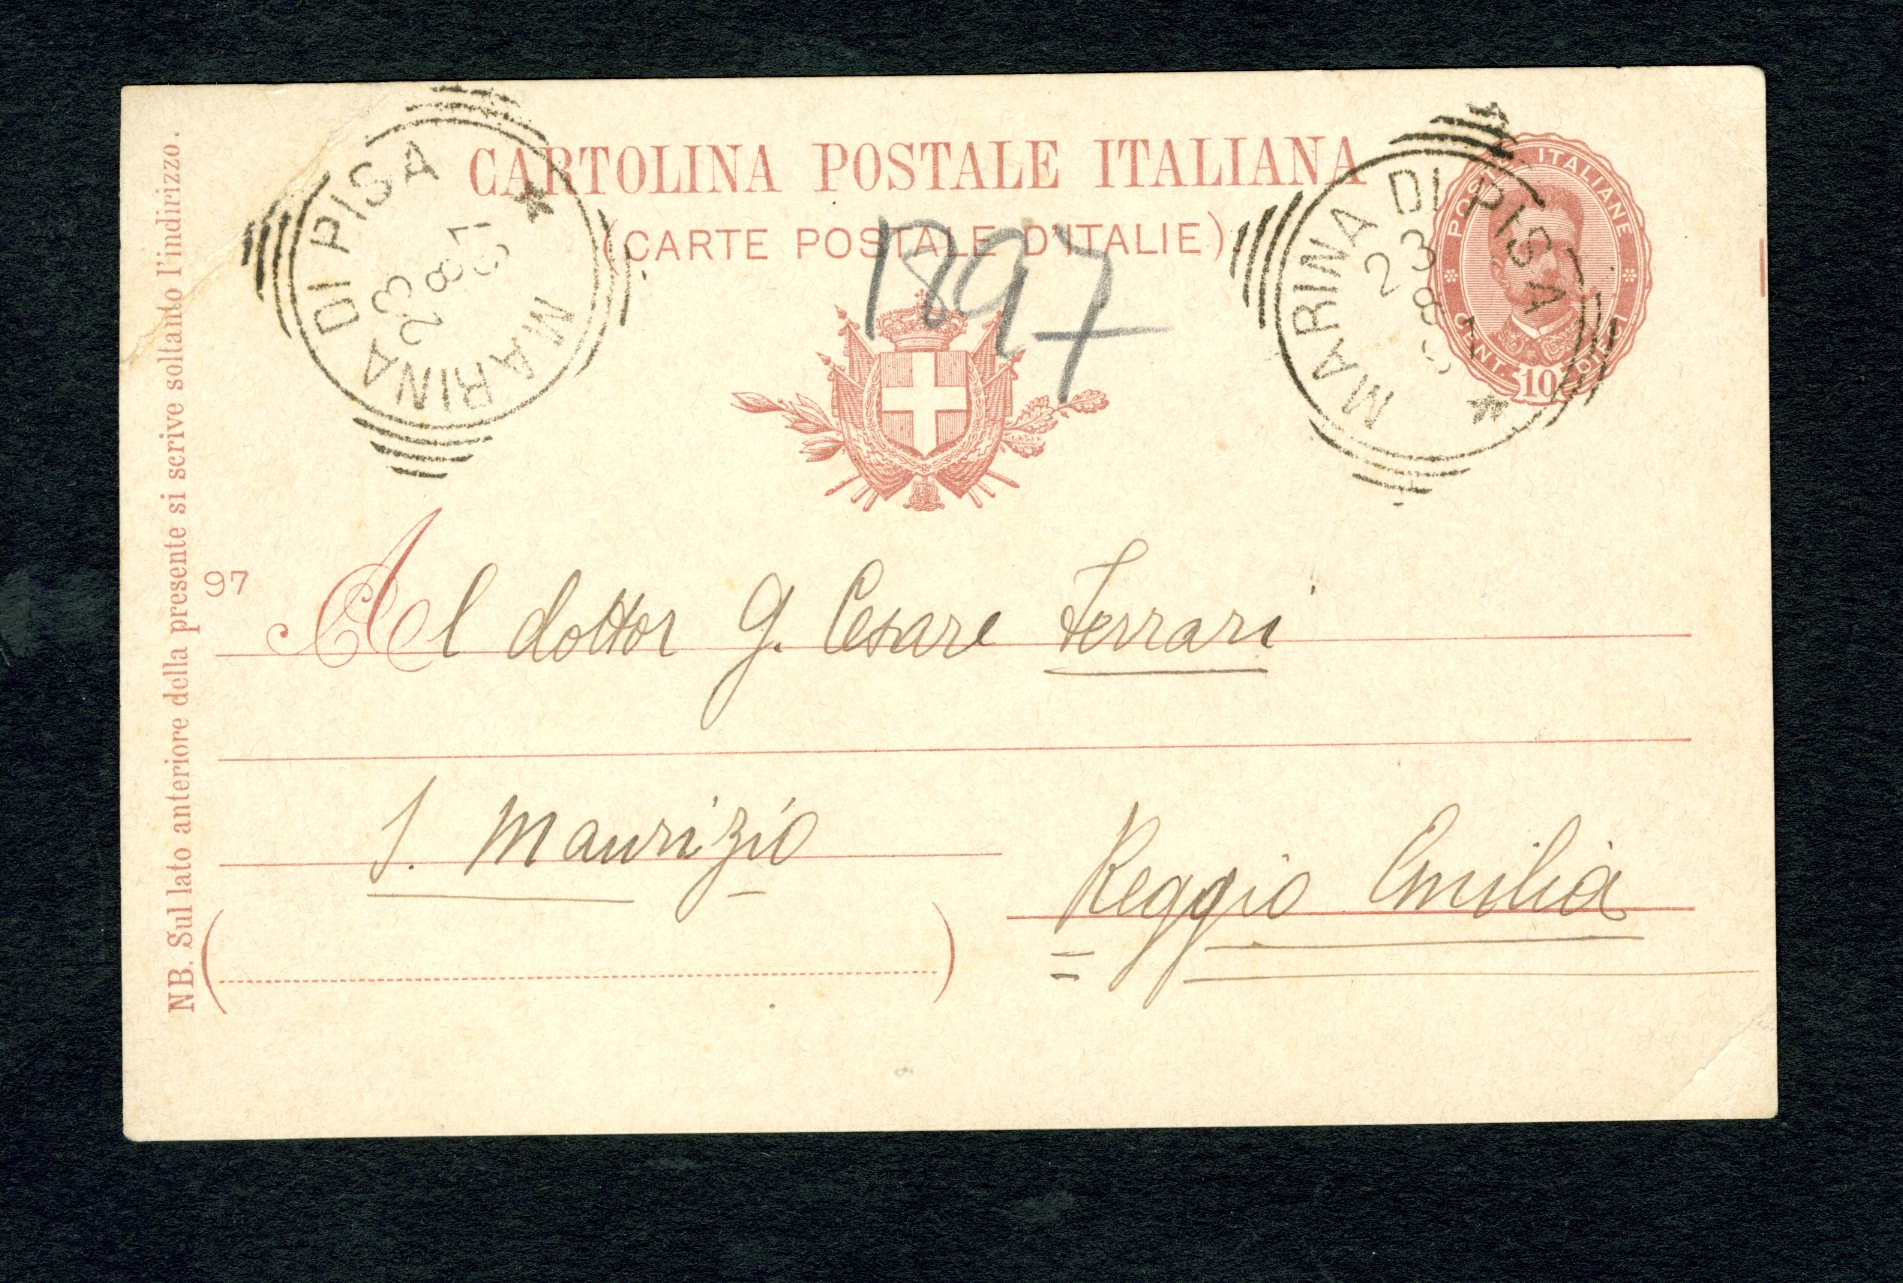 CARTOLINA POSTALE ITALIANA
(CARTE POSTALE D'ITALIE)
1897
MARINA DI PISA
23
8
97
MARINA DI PISA
23
8
POSTE ITALIANE
CENT. 10 DIECI
NB. Sul lato anteriore della presente si scrive soltanto l'indirizzo.
97
Al dottor G. Cesare Ferrari
S. Maurizio
Reggio Emilia